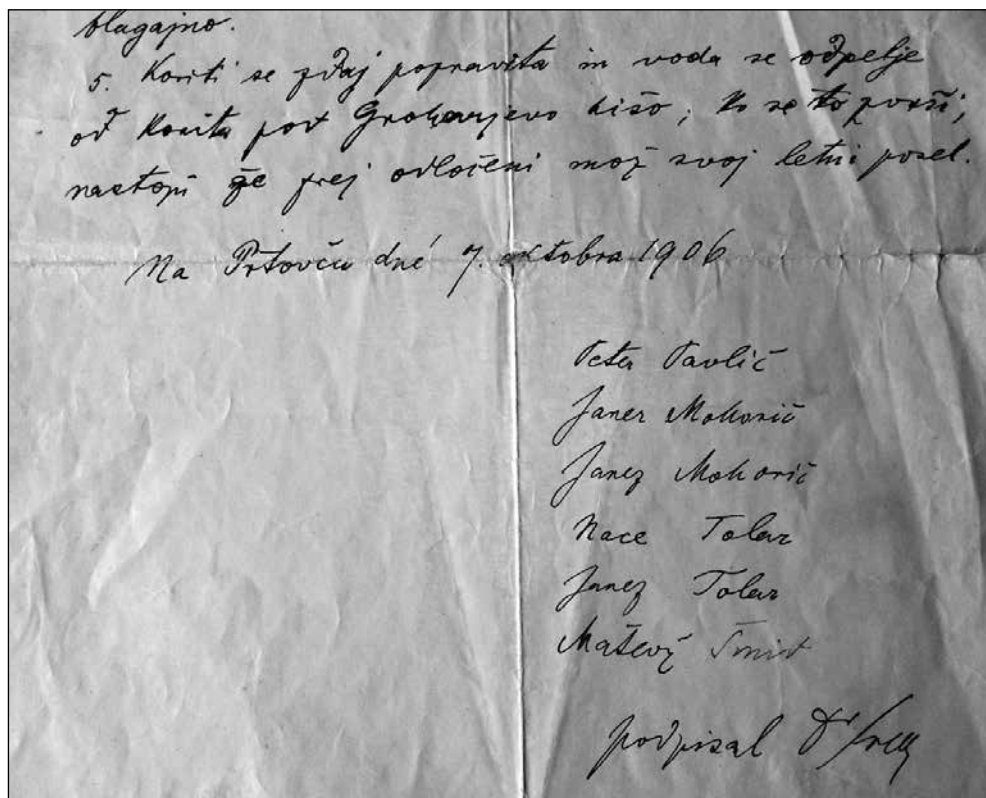 blagajno.
5. Koriti se zdaj popravita in voda se odpelje
od korita pod Groharjevo hišo; ko se to zvrši,
nastopi že prej odločeni mož svoj letni posel.
Na Prtovču dné 7. oktobra 1906
Peter Pavlič
Janez Mohorič
Janez Mohorič
Nace Tolar
Janez Tolar
Matevž Šmid
podpisal